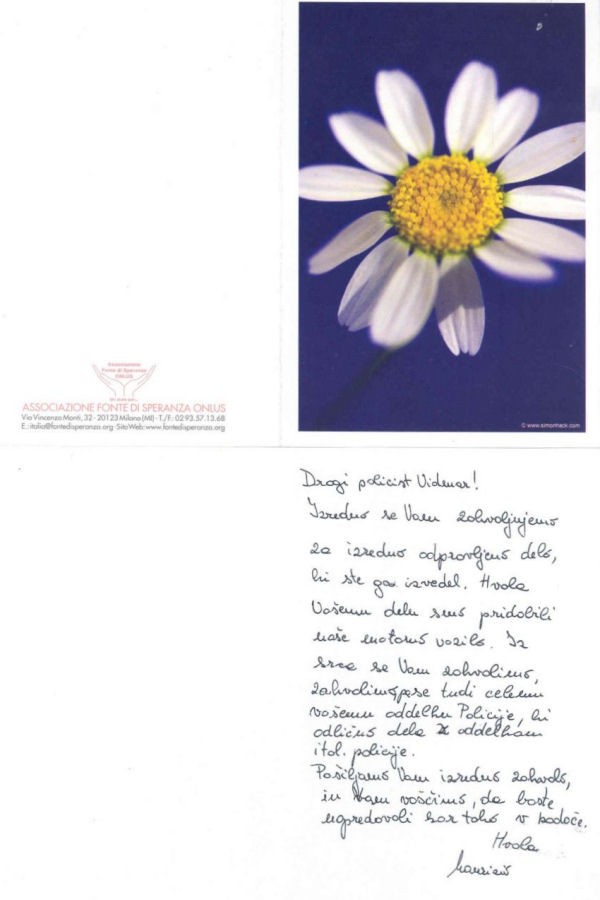 © www.simonheck.com
Associazione
Fonte di Speranza
ONLUS
ASSOCIAZIONE FONTE DI SPERANZA ONLUS
Via Vincenzo Monti, 32 - 20123 Milano (MI) - T./F.: 02.93.57.13.68
E.: italia@fontedisperanza.org - Sito Web: www.fontedisperanza.org
Dragi policist Vidmar!
Izredno se Vam zahvaljujemo
za izredno odpravljeno delo,
ki ste ga izvedel. Hvala
Vašemu delu smo pridobili
naše motorno vozilo. Iz
srca se Vam zahvalimo,
zahvalimo pa se tudi celemu
vašemu oddelku Policije, ki
odlično dela z oddelkom
ital. policije.
Pošiljamo Vam izredno zahvalo,
in Vam voščimo, da boste
napredovali kar tako v bodoče.
Hvala